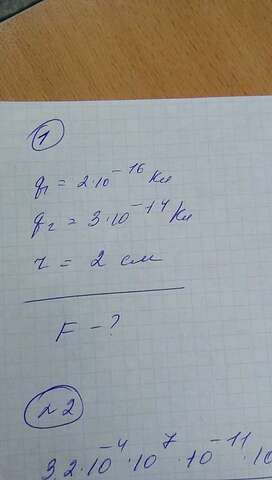 1
q₁ = 2·10⁻¹⁶ Кл
q₂ = 3·10⁻¹⁴ Кл
r = 2 см
F - ?
№2
3,2·10⁻⁴·10⁷·10⁻¹¹·10